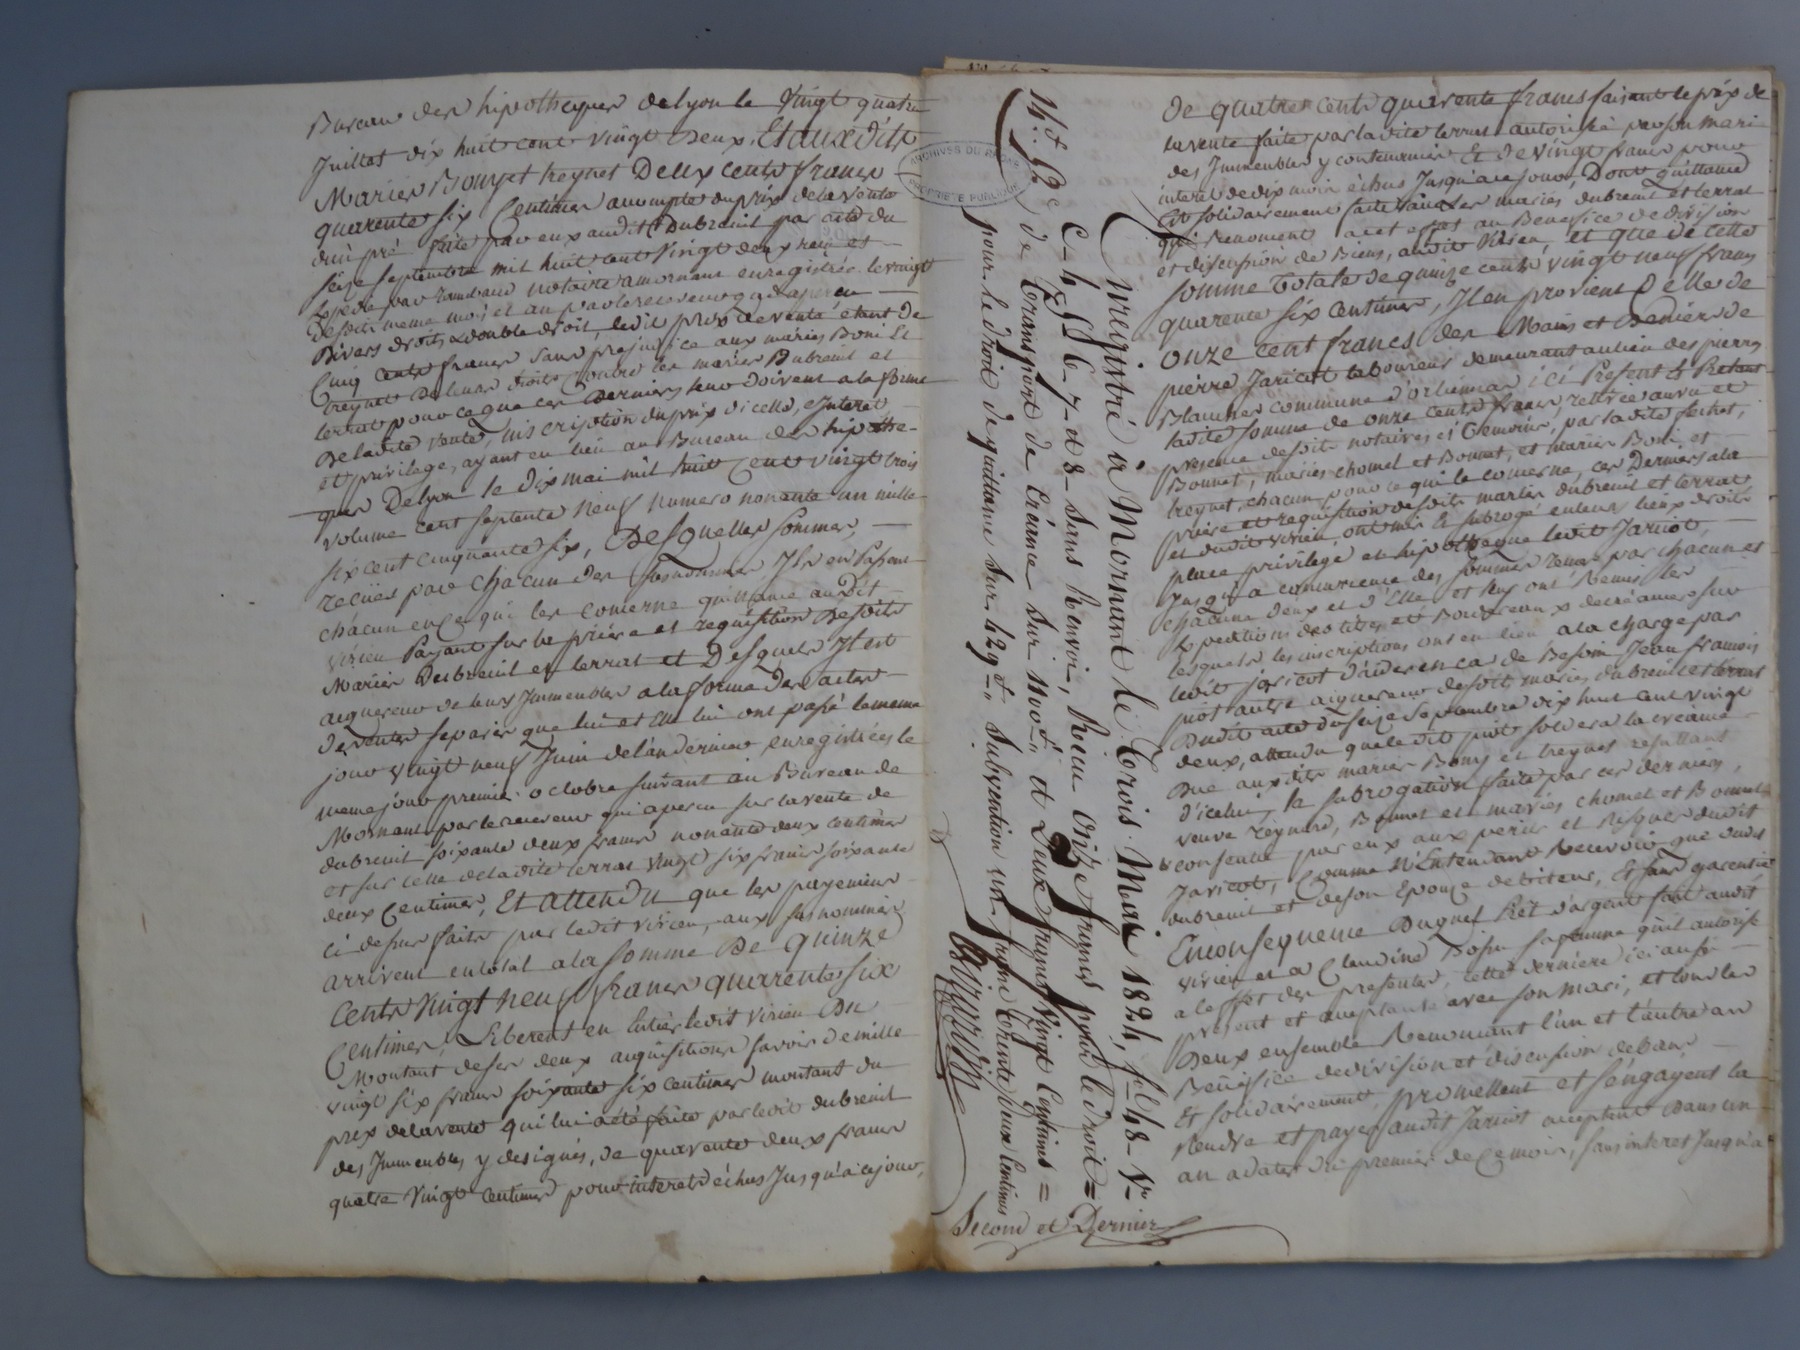 Bureau des hipotheques de lyon le Vingt quatre
Juillet dix huit cent vingt Deux, Et aux dits
Mariés Bony et treynet Deux cents francs
quarente six Centimes acompte du prix de la vente
d'un pré faite par eux audit Dubreuil par acte du
seize septembre mil huit cent vingt deux reçu et
expédié par notaire a mornant enregistré le vingt
desdits meme mois et an par le receveur qui a perçu
Divers droits & double droit, ledit prix de vente etant de
Cinq cents francs sans prejudice aux mariés Boni Et
treynet de leurs droits Contre les mariés Dubreuil et
terrat pour ce que ces Derniers leur doivent a la forme
De ladite vente, inscription du prix d'icelle, Interet
et privilege, ayant eu lieu au Bureau des hipothe-
ques De lyon le dix mai mil huit Cent vingt trois
volume cent septente neuf numero nonente un mille
six cent cinquante six, Desquelles sommes,
reçües par chacun des susnommés Ils en passent
chacun en ce qui les concerne quittance audit
virieu Payant sur la prière et requisition Desdits
Mariés Dubreuil et terrat et Desquels Il est
acquereur de leurs Immeubles a la forme des actes
de ventes separés que lui et Elle lui ont passé le meme
jour vingt neuf Juin de l'an dernier enregistrées le
meme jour premier octobre suivant au Bureau de
Mornant par le receveur qui a perçu sur la vente de
dubreuil soixante deux francs nonante deux centimes
et sur celle de ladite terrat vingt six francs soixante
deux Centimes, Et attendu que les payemens
ci dessus faits par ledit virieu, aux susnommés
arrivent en total a la somme De Quinze
Cents Vingt neuf francs quarente six
Centimes, Liberent en entier ledit virieu Du
Montant de ses deux acquisitions savoir de mille
vingt six francs soixante six centimes montant du
prix de la vente qui lui a été faite par ledit dubreuil
des Immeubles y designés, de quarente deux francs
quatre Vingt centimes pour interets échus Jusqu'à ce jour,
ARCHIVES DU RHONE
PROPRIETE PUBLIQUE
Enregistré à Mornant le trois Mai 1824, fo 48 Vo
C 4, 5, 6, 7 et 8 Sans Renvoi, Reçu Onze francs pour le droit
de transport de Créance Sur 1100f et Deux francs Vingt Centimes
pour le droit de quittance Sur 429f Subvention un franc trente deux Centimes
14f 52c
Second et Dernier
De quatre cents quarente francs faisant le prix de
la vente faite par la dite terrat autorisée par son mari
des Immeubles y contenus Et de vingt francs pour
interet de dix mois échus Jusqu'a ce jour, Dont quittance
Est solidairement faite par les mariés dubreuil et terrat
qui Renoncent a cet effet au Benefice de division
et discussion de Biens, audit virieu, et que de cette
somme totale de quinze cents vingt neuf francs
quarente six Centimes, Il en provient D'elle de
onze cent francs des Mains et Deniers de
pierre Jaricot laboureur demeurant au lieu des pierres
Blanches commune d'orliénas ici Present Et Retirant
ladite somme de onze cents francs, retirée au vu et
presence desdits notaires et temoins, par ladite
Bonnet, mariés chomel et Bonnet, et mariés Boni, et
treynet, chacun pour ce qui le concerne, ces Derniers a la
prière et requisition desdits mariés dubreuil et terrat,
et dudit virieu, ont mis & subrogé en leurs lieux droits
place privilege et hipotheque ledit Jaricot,
Jusqu'a concurrence des sommes reçues par chacun et
chacune deux et d'Elle et lui ont Remis les
expeditions des titres et Bordereaux de créances sur
lesquels les inscriptions ont eu lieu a la charge par
ledit jaricot d'aider en cas de Besoin Jean francois
piot autre acquereur desdits mariés dubreuil et terrat
Dudit acte du seize septembre dix huit cent vingt
deux, attendu que ledit piot soldera la creance
Due auxdits mariés Bony et treynet resultant
d'icelui, la subrogation faite par ces derniers,
veuve reynard, Bonnet et mariés chomel et Bonnet
consentie par eux aux perils et Risques dudit
Jaricot, Comme N'Entendant Recevoir que dudit
dubreuil et de son Epouse debiteurs, Et sans garentie
En consequence Duquel Prêt d'argent fait audit
virieu et a Claudine sa femme qu'il autorise
a l'effet des presentes, cette derniere ici aussi
present et acceptante avec son mari, et tous les
Deux ensemble Renoncant l'un et l'autre au
Benefice de division et discussion de biens
Et solidairement promettent et s'engagent la
Rendre et payer audit Jaricot acceptant Dans un
an a dater du premier de Ce mois, sans interet jusqu'a